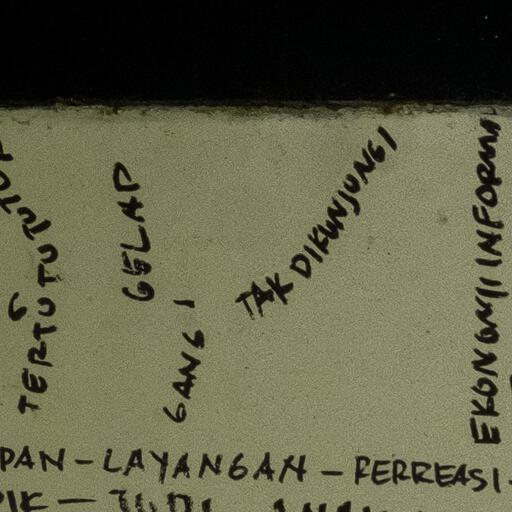 TERTUTUTUTUT
GELAP
GANG 1
TAK DIKUNJUNGI
EKONOMI INFORMA
PAN - LAYANGAN - PERREASI -
PIK -